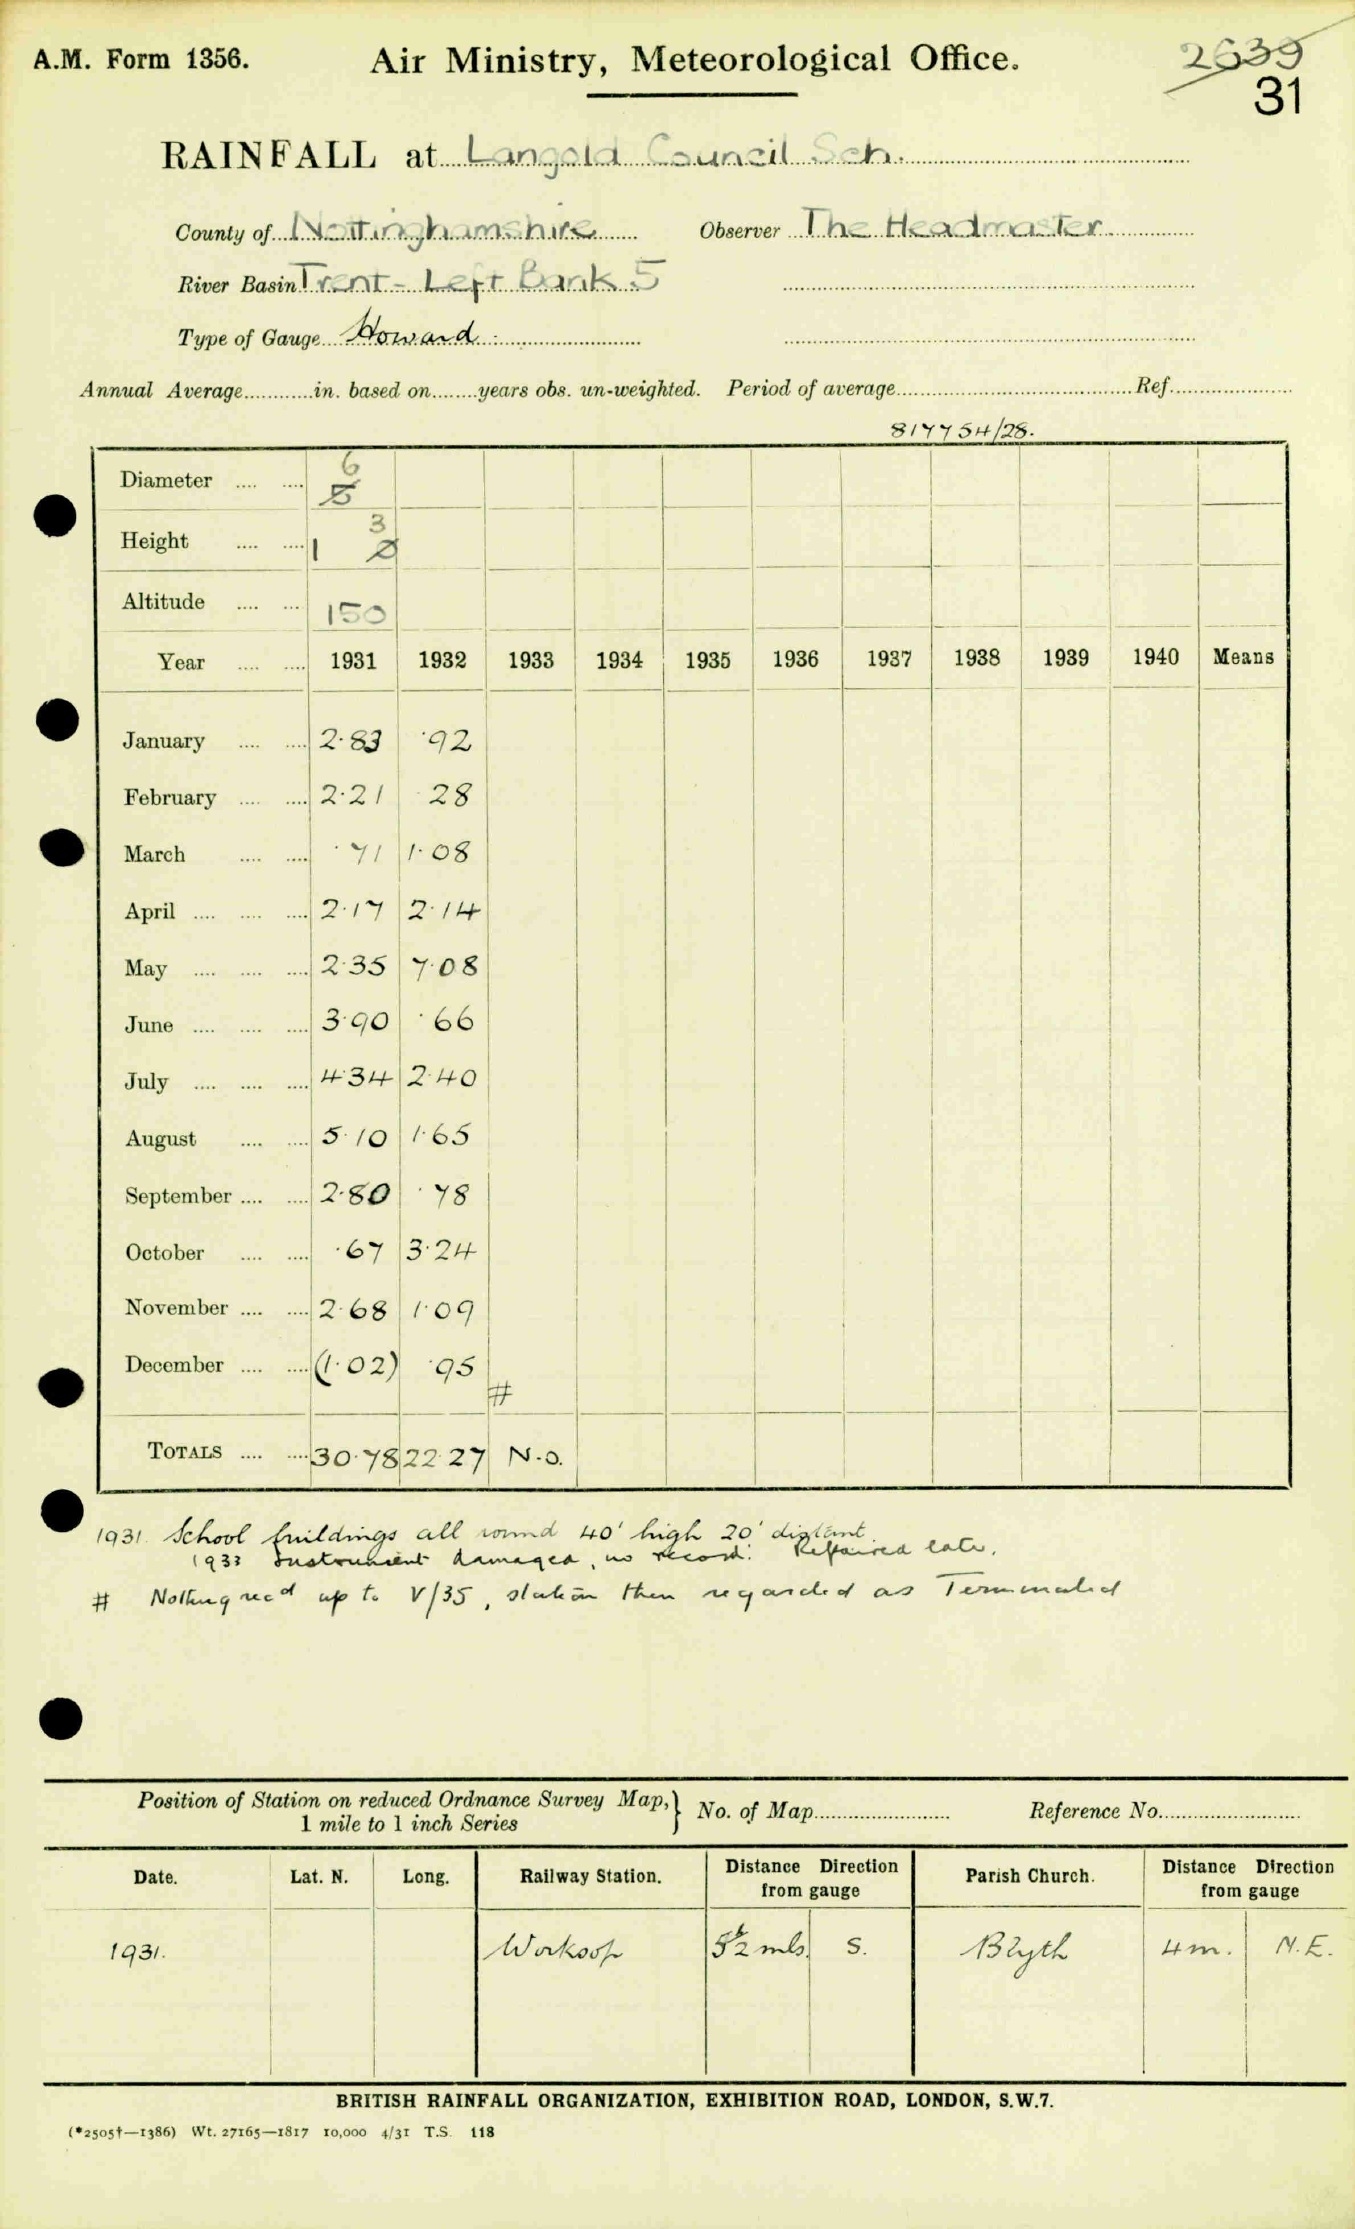 A.M. Form 1356. Air Ministry, Meteorological Office. 2639
31
RAINFALL at Langold Council Sch.
County of Nottinghamshire Observer The Headmaster
River Basin Trent - Left Bank 5
Type of Gauge Howard
Annual Average............in. based on........years obs. un-weighted. Period of average........................Ref.....................
817754/28.
Diameter .... .... 6 5
Height .... .... 1 3 0
Altitude .... .... 150
Year .... .... 1931 1932 1933 1934 1935 1936 1937 1938 1939 1940 Means
January .... .... 2·83 ·92
February .... .... 2·21 ·28
March .... .... ·71 1·08
April .... .... .... 2·17 2·14
May .... .... .... 2·35 7·08
June .... .... .... 3·90 ·66
July .... .... .... 4·34 2·40
August .... .... 5·10 1·65
September .... .... 2·80 ·78
October .... .... ·67 3·24
November .... .... 2·68 1·09
December .... .... (1·02) ·95 #
TOTALS .... .... 30·78 22·27 N.O.
1931 School buildings all round 40' high 20' distant
1933 Instrument damaged, no record. Repaired late.
# Nothing recd up to V/35, station then regarded as Terminated
Position of Station on reduced Ordnance Survey Map,} No. of Map........................ Reference No........................
1 mile to 1 inch Series
Date. Lat. N. Long. Railway Station. Distance Direction from gauge Parish Church. Distance Direction from gauge
1931. Worksop 5½ mls. S. Blyth 4 m. N.E.
BRITISH RAINFALL ORGANIZATION, EXHIBITION ROAD, LONDON, S.W.7.
(*2505†—1386) Wt. 27165—1817 10,000 4/31 T.S. 118